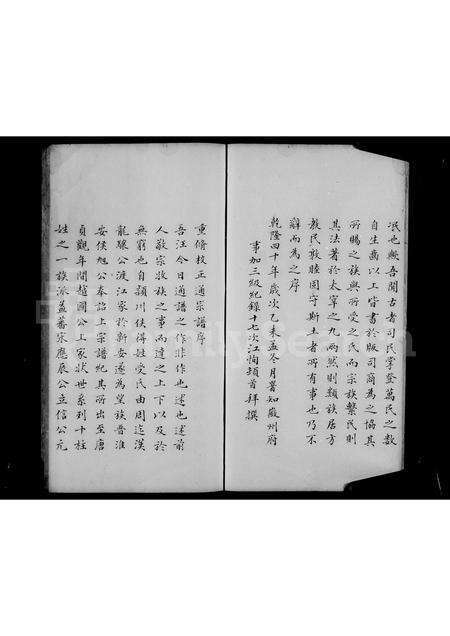 氓也歟吾聞古者司民掌登萬民之數
自生齒以上皆書於版司商爲之協其
所賜之族與所受之氏而宗族繁民則
其法著於太宰之九兩然則類族居方
敘民敦睦固守斯土者所有事也乃不
辭而爲之序
乾隆四十年歲次乙未孟冬月署知徽州府
事加三級紀錄十七次江恂頓首拜撰
重脩校正通宗譜序
吾汪今日通譜之作非作也述也述前
人敬宗收族之事而達之上下以及於
無窮也自潁川侯得姓受氏由周迄漢
龍驤公渡江家於新安遂爲望族晉淮
安侯旭公奉詔上宗譜紀其所出至唐
貞觀年間越國公上家狀世系列十柱
姓之一族派益蕃宋應辰公立信公元